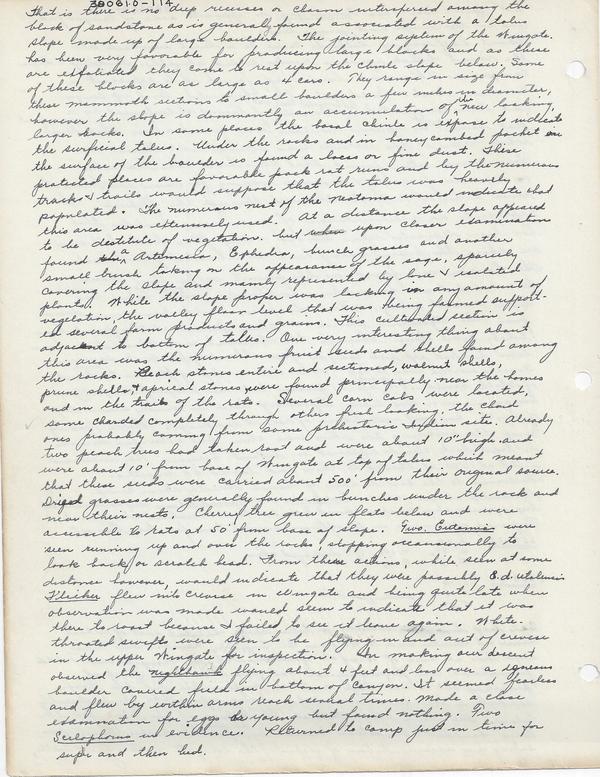 380610-114
That is there is no deep recesses or chasm interspersed among the
block of sandstone as is generally found associated with a talus
slope made up of large boulders. The jointing system of the Wingate
has been very favorable for producing large blocks and as these
are exfoliated they come to rest upon the Chinle slope below. Some
of these blocks are as large as 4 cars. They range in size from
these mammoth sections to small boulders a few inches in diameter,
however the slope is dominantly an accumulation of the new looking,
larger rocks. In some places the basal chinle is expose to indicate
the surficial talus. Under the rocks and in honeycombed pocket in
the surface of the boulder is found a loess or fine dust. These
protected places are favorable pack rat runs and by the numerous
tracks & trails would suppose that the talus was heavily
populated. The numerous nest of the Neotoma would indicate that
this area was extensively used. At a distance the slope appeared
to be destitute of vegetation, but when upon closer examination
found a Artemesia, Ephedra, bunch grasses and another
small brush taking on the appearance of the sage, sparsely
covering the slope and mainly represented by lone & isolated
plants. While the slope proper was lacking in any amount of
vegetation, the valley floor level that was being farmed support-
ed several farm products and grains. This cultivated section is
adjacent to bottom of talus. One very interesting thing about
this area was the numerous fruit seeds and shells found among
the rocks. Peach stones entire and sectioned, walnut shells,
prune shells, & apricot stones were found principally near the homes
and in the trails of the rats. Several corn cobs were located,
some charded completely through others fresh looking, the chard
ones probably coming from some prehistoric Indian site. Already
two peach trees had taken root and were about 10" high and
were about 10' from base of Wingate at top of talus which meant
that these seeds were carried about 500' from their original source.
Dried grasses were generally found in bunches under the rock and
near their nests. Cherry tree grew in flats below and were
accessible to rats at 50' from base of slope. Two Eutamias were
seen running up and over the rocks, stopping occassionally to
look back or scratch head. From these actions, while seen at some
distance however, would indicate that they were possibly E. d. utahensis
Flicker flew into crevise in Wingate and being quite late when
observation was made would seem to indicate that it was
there to roost because I failed to see it leave again. White-
throated swifts were seen to be flying in and out of crevise
in the upper Wingate for inspection. In making our descent
observed the nighthawk flying about 4 feet and less over a igneous
boulder covered field in bottom of canyon. It seemed fearless
and flew by within arms reach several times. Made a close
examination for eggs or young but found nothing. Two
Sceloporus in evidence. Returned to camp just in time for
super and then bed.